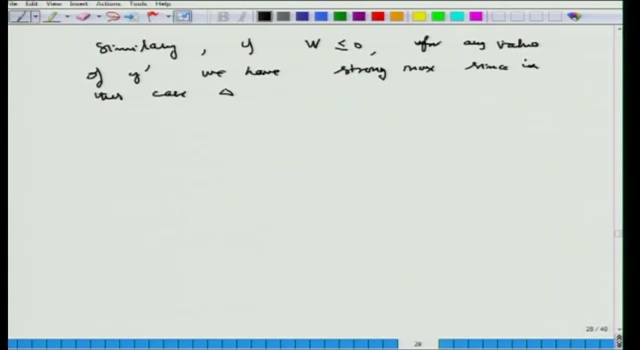 Edit View Insert Actions Tools Help
Similary, if W ≤ 0, for any value
of y' we have strong max since in
this case Δ
28 / 40
28